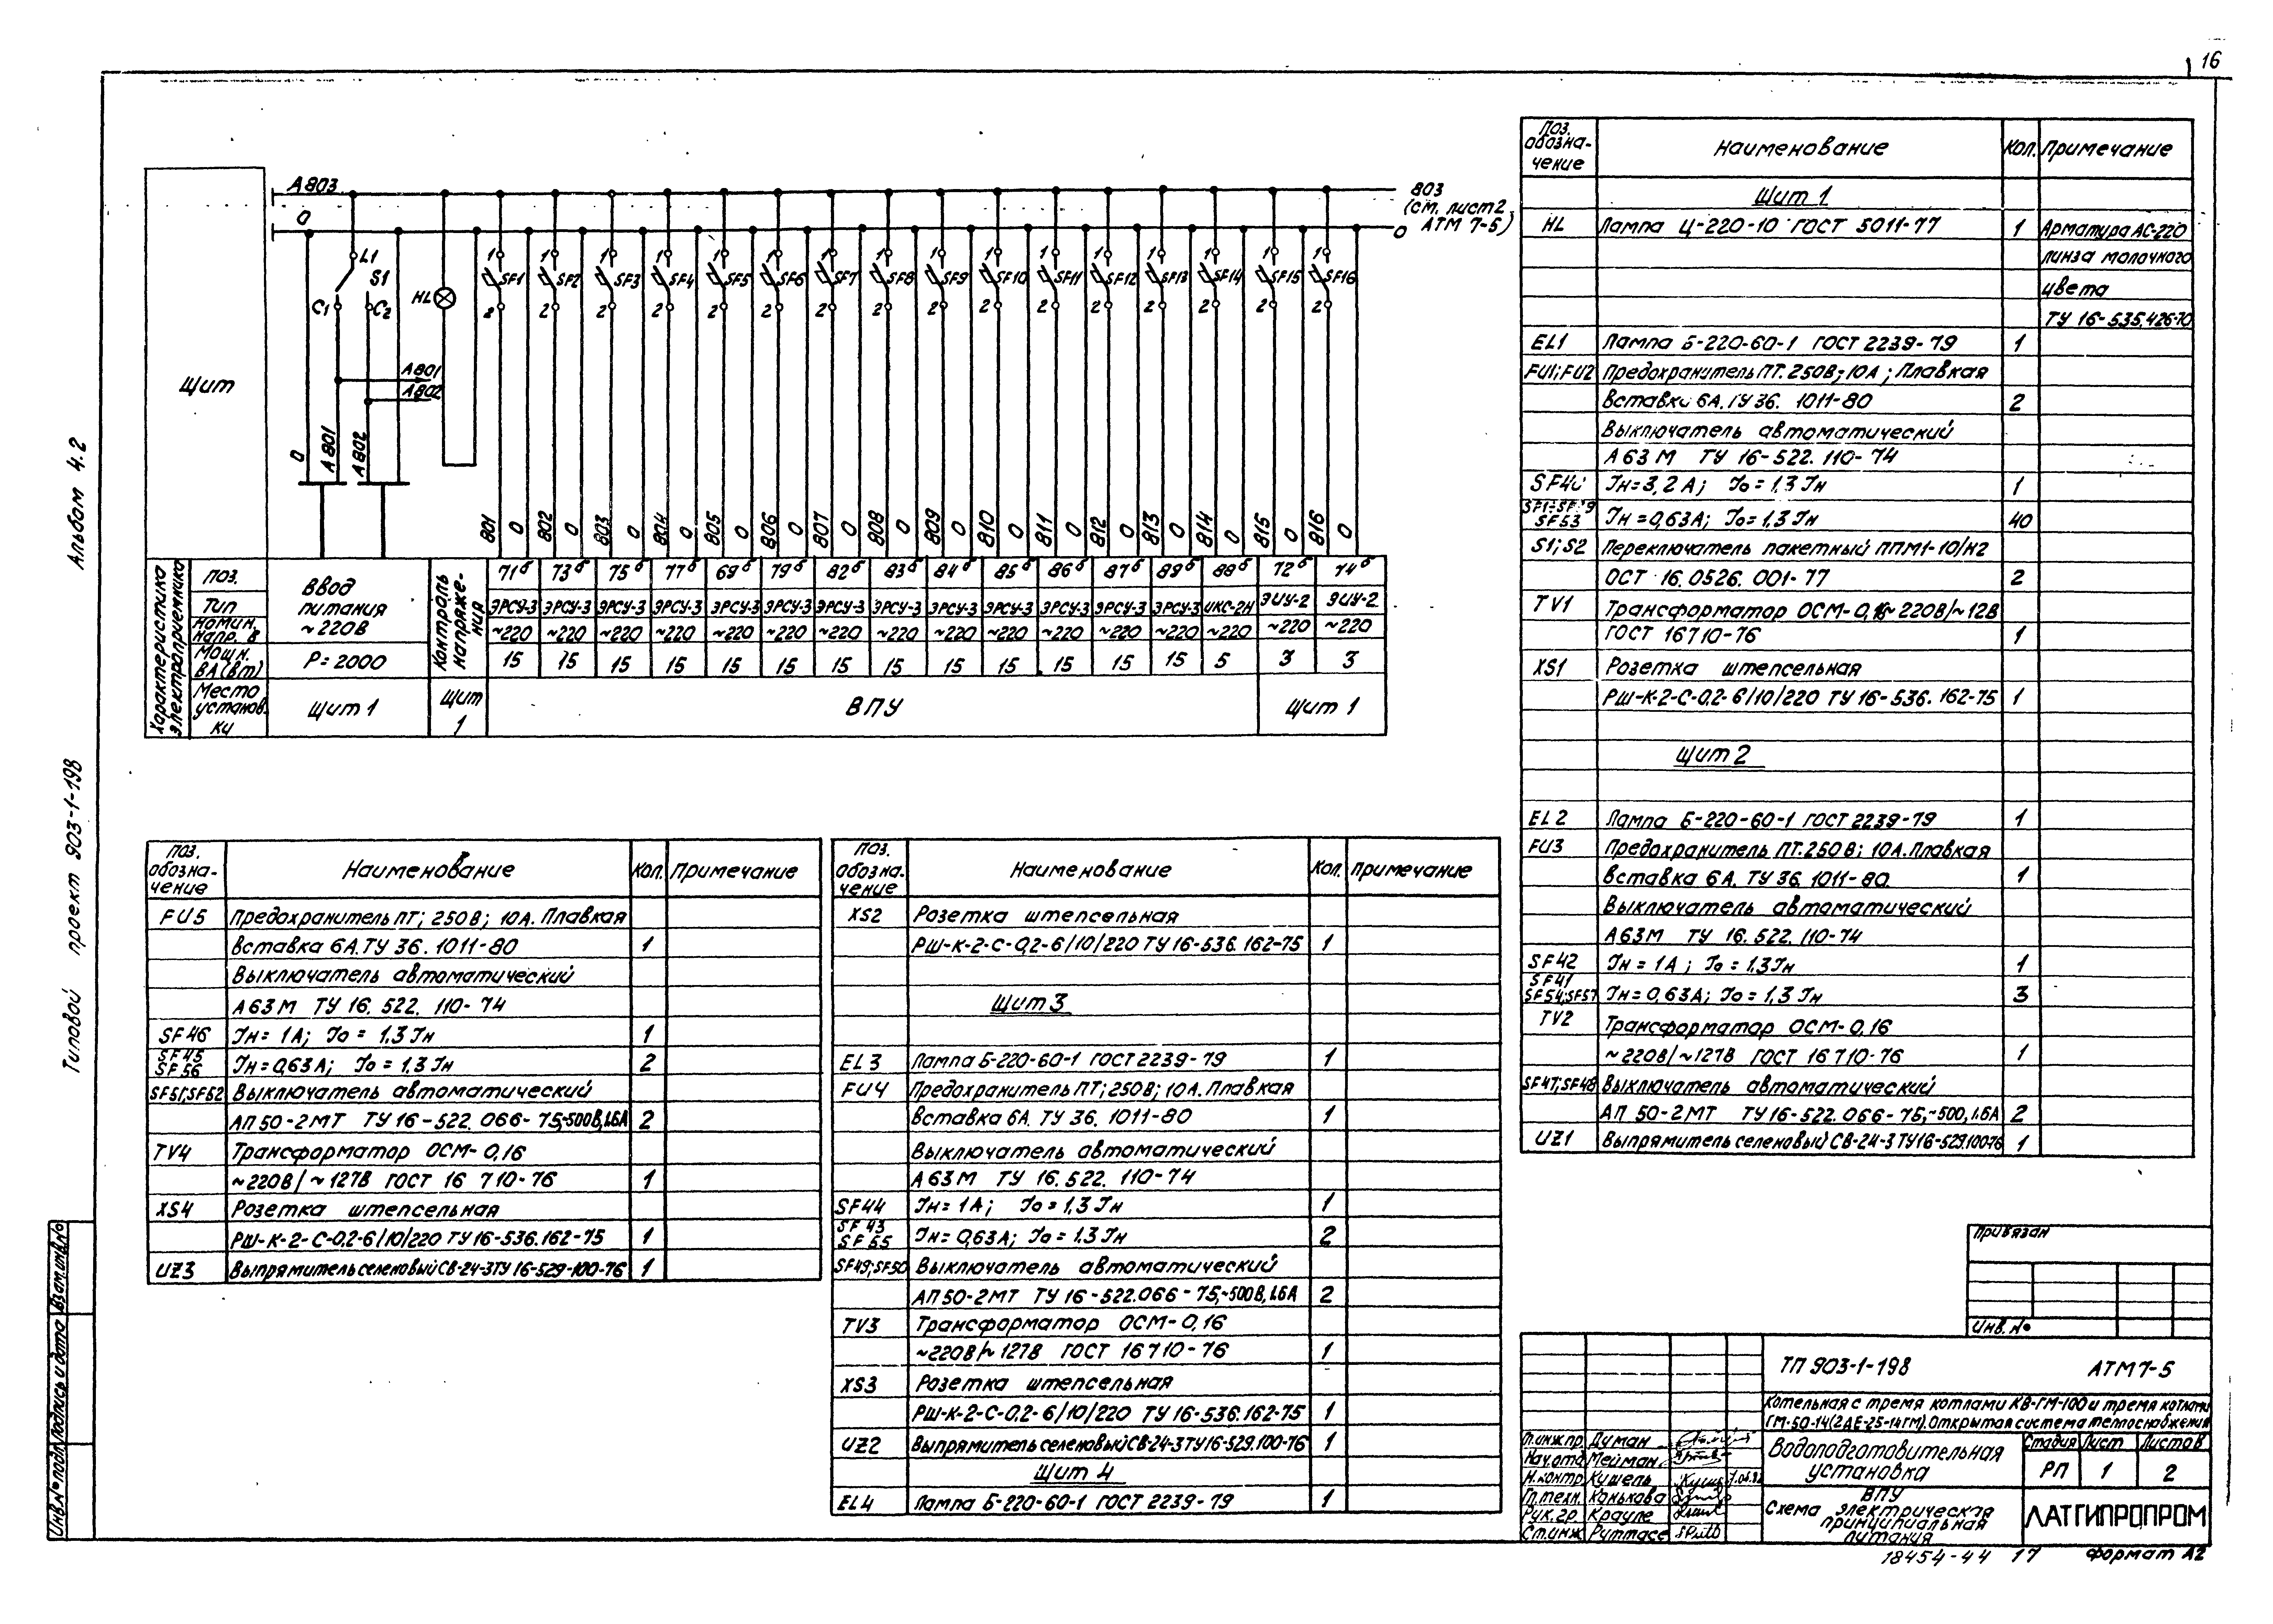 16
Альбом 4.2
Типовой проект 903-1-198
Взам.инв.№
Подпись и дата
Инв.№ подл.
Щит
А803
0
803
(см. лист 2
АТМ 7-5)
0
L1
S1
C1
C2
HL
А801
А802
0
А801
А802
1 1 1 1 1 1 1 1 1 1 1 1 1 1 1 1
SF1 SF2 SF3 SF4 SF5 SF6 SF7 SF8 SF9 SF10 SF11 SF12 SF13 SF14 SF15 SF16
2 2 2 2 2 2 2 2 2 2 2 2 2 2 2 2
801 0 802 0 803 0 804 0 805 0 806 0 807 0 808 0 809 0 810 0 811 0 812 0 813 0 814 0 815 0 816 0
Характеристика электроприемника
Поз. 71б 73б 75б 77б 69б 79б 82б 83б 84б 85б 86б 87б 89б 88б 72б 74б
Тип ЭРСУ-3 ЭРСУ-3 ЭРСУ-3 ЭРСУ-3 ЭРСУ-3 ЭРСУ-3 ЭРСУ-3 ЭРСУ-3 ЭРСУ-3 ЭРСУ-3 ЭРСУ-3 ЭРСУ-3 ЭРСУ-3 ИКС-2Н ЭИУ-2 ЭИУ-2
Номин. напр. В ~220 ~220 ~220 ~220 ~220 ~220 ~220 ~220 ~220 ~220 ~220 ~220 ~220 ~220 ~220 ~220
Мощн. ВА(Вт) 15 15 15 15 15 15 15 15 15 15 15 15 15 5 3 3
Место установки
Ввод
питания
~220В
Р=2000
Щит 1
Контроль напряжения
Щит 1
ВПУ
Щит 1
Поз. обозначение Наименование Кол. Примечание
Щит 1
HL Лампа Ц-220-10 ГОСТ 5011-77 1 Арматура АС-220
линза молочного
цвета
ТУ 16-535.426-70
EL1 Лампа Б-220-60-1 ГОСТ 2239-79 1
FU1;FU2 Предохранитель ПТ. 250В; 10А; Плавкая
вставка 6А. ТУ 36. 1011-80 2
Выключатель автоматический
А63М ТУ 16-522. 110-74
SF40 Iн=3,2А; Iо=1,3Iн 1
SF53 Iн=0,63А; Iо=1,3Iн 40
S1;S2 Переключатель пакетный ППМ1-10/Н2
ОСТ 16.0526.001-77 2
TV1 Трансформатор ОСМ-0,16~220В/~12В
ГОСТ 16710-76 1
XS1 Розетка штепсельная
РШ-К-2-С-0,2-6/10/220 ТУ 16-536.162-75 1
Щит 2
EL2 Лампа Б-220-60-1 ГОСТ 2239-79 1
FU3 Предохранитель ПТ. 250В; 10А. Плавкая
вставка 6А. ТУ 36. 1011-80. 1
Выключатель автоматический
А63М ТУ 16.522. 110-74
SF42 Iн=1А; Iо=1,3Iн 1
SF41
SF54;SF57 Iн=0,63А; Iо=1,3Iн 3
TV2 Трансформатор ОСМ-0,16
~220В/~127В ГОСТ 16710-76 1
SF47;SF48 Выключатель автоматический
АП 50-2МТ ТУ 16-522.066-75;~500,1.6А 2
UZ1 Выпрямитель селеновый СВ-24-3 ТУ16-529.100-76 1
Поз. обозначение Наименование Кол. Примечание
FU5 Предохранитель ПТ; 250В; 10А. Плавкая
вставка 6А.ТУ 36. 1011-80 1
Выключатель автоматический
А63М ТУ 16. 522. 110-74
SF46 Iн=1А; Iо=1,3Iн 1
SF45
SF56 Iн=0,63А; Iо=1,3Iн 2
SF51;SF52 Выключатель автоматический
АП50-2МТ ТУ 16-522.066-75;~500В,1.6А 2
TV4 Трансформатор ОСМ-0,16
~220В/~127В ГОСТ 16 710-76 1
XS4 Розетка штепсельная
РШ-К-2-С-0,2-6/10/220 ТУ 16-536.162-75 1
UZ3 Выпрямитель селеновый СВ-24-3ТУ 16-529-100-76 1
Поз. обозначение Наименование Кол. Примечание
XS2 Розетка штепсельная
РШ-К-2-С-0,2-6/10/220 ТУ 16-536.162-75 1
Щит 3
EL3 Лампа Б-220-60-1 ГОСТ 2239-79 1
FU4 Предохранитель ПТ; 250В; 10А. Плавкая
вставка 6А. ТУ 36. 1011-80 1
Выключатель автоматический
А63М ТУ 16.522. 110-74
SF44 Iн=1А; Iо=1,3Iн 1
SF43
SF55 Iн=0,63А; Iо=1.3Iн 2
SF49;SF50 Выключатель автоматический
АП50-2МТ ТУ 16-522.066-75;~500В,1.6А 2
TV3 Трансформатор ОСМ-0,16
~220В/~127В ГОСТ 16710-76 1
XS3 Розетка штепсельная
РШ-К-2-С-0.2-6/10/220 ТУ 16-536.162-75 1
UZ2 Выпрямитель селеновый СВ-24-3ТУ16-529.100-76 1
Щит 4
EL4 Лампа Б-220-60-1 ГОСТ 2239-79 1
Привязан
Инв. №
ТП 903-1-198 АТМ7-5
Котельная с тремя котлами КВ-ГМ-100 и тремя котлами
ГМ-50-14(2ДЕ-25-14ГМ). Открытая система теплоснабжения
Гл.инж.пр. Думан
Нач.отд Мейман
Н.контр Кушель
Гл.техн. Конькова
Рук.гр. Крауле
Ст.инж Руттасе
Водоподготовительная
установка
Стадия Лист Листов
РП 1 2
ВПУ
Схема электрическая
принципиальная
питания
ЛАТГИПРОПРОМ
18454-44 17 формат А2